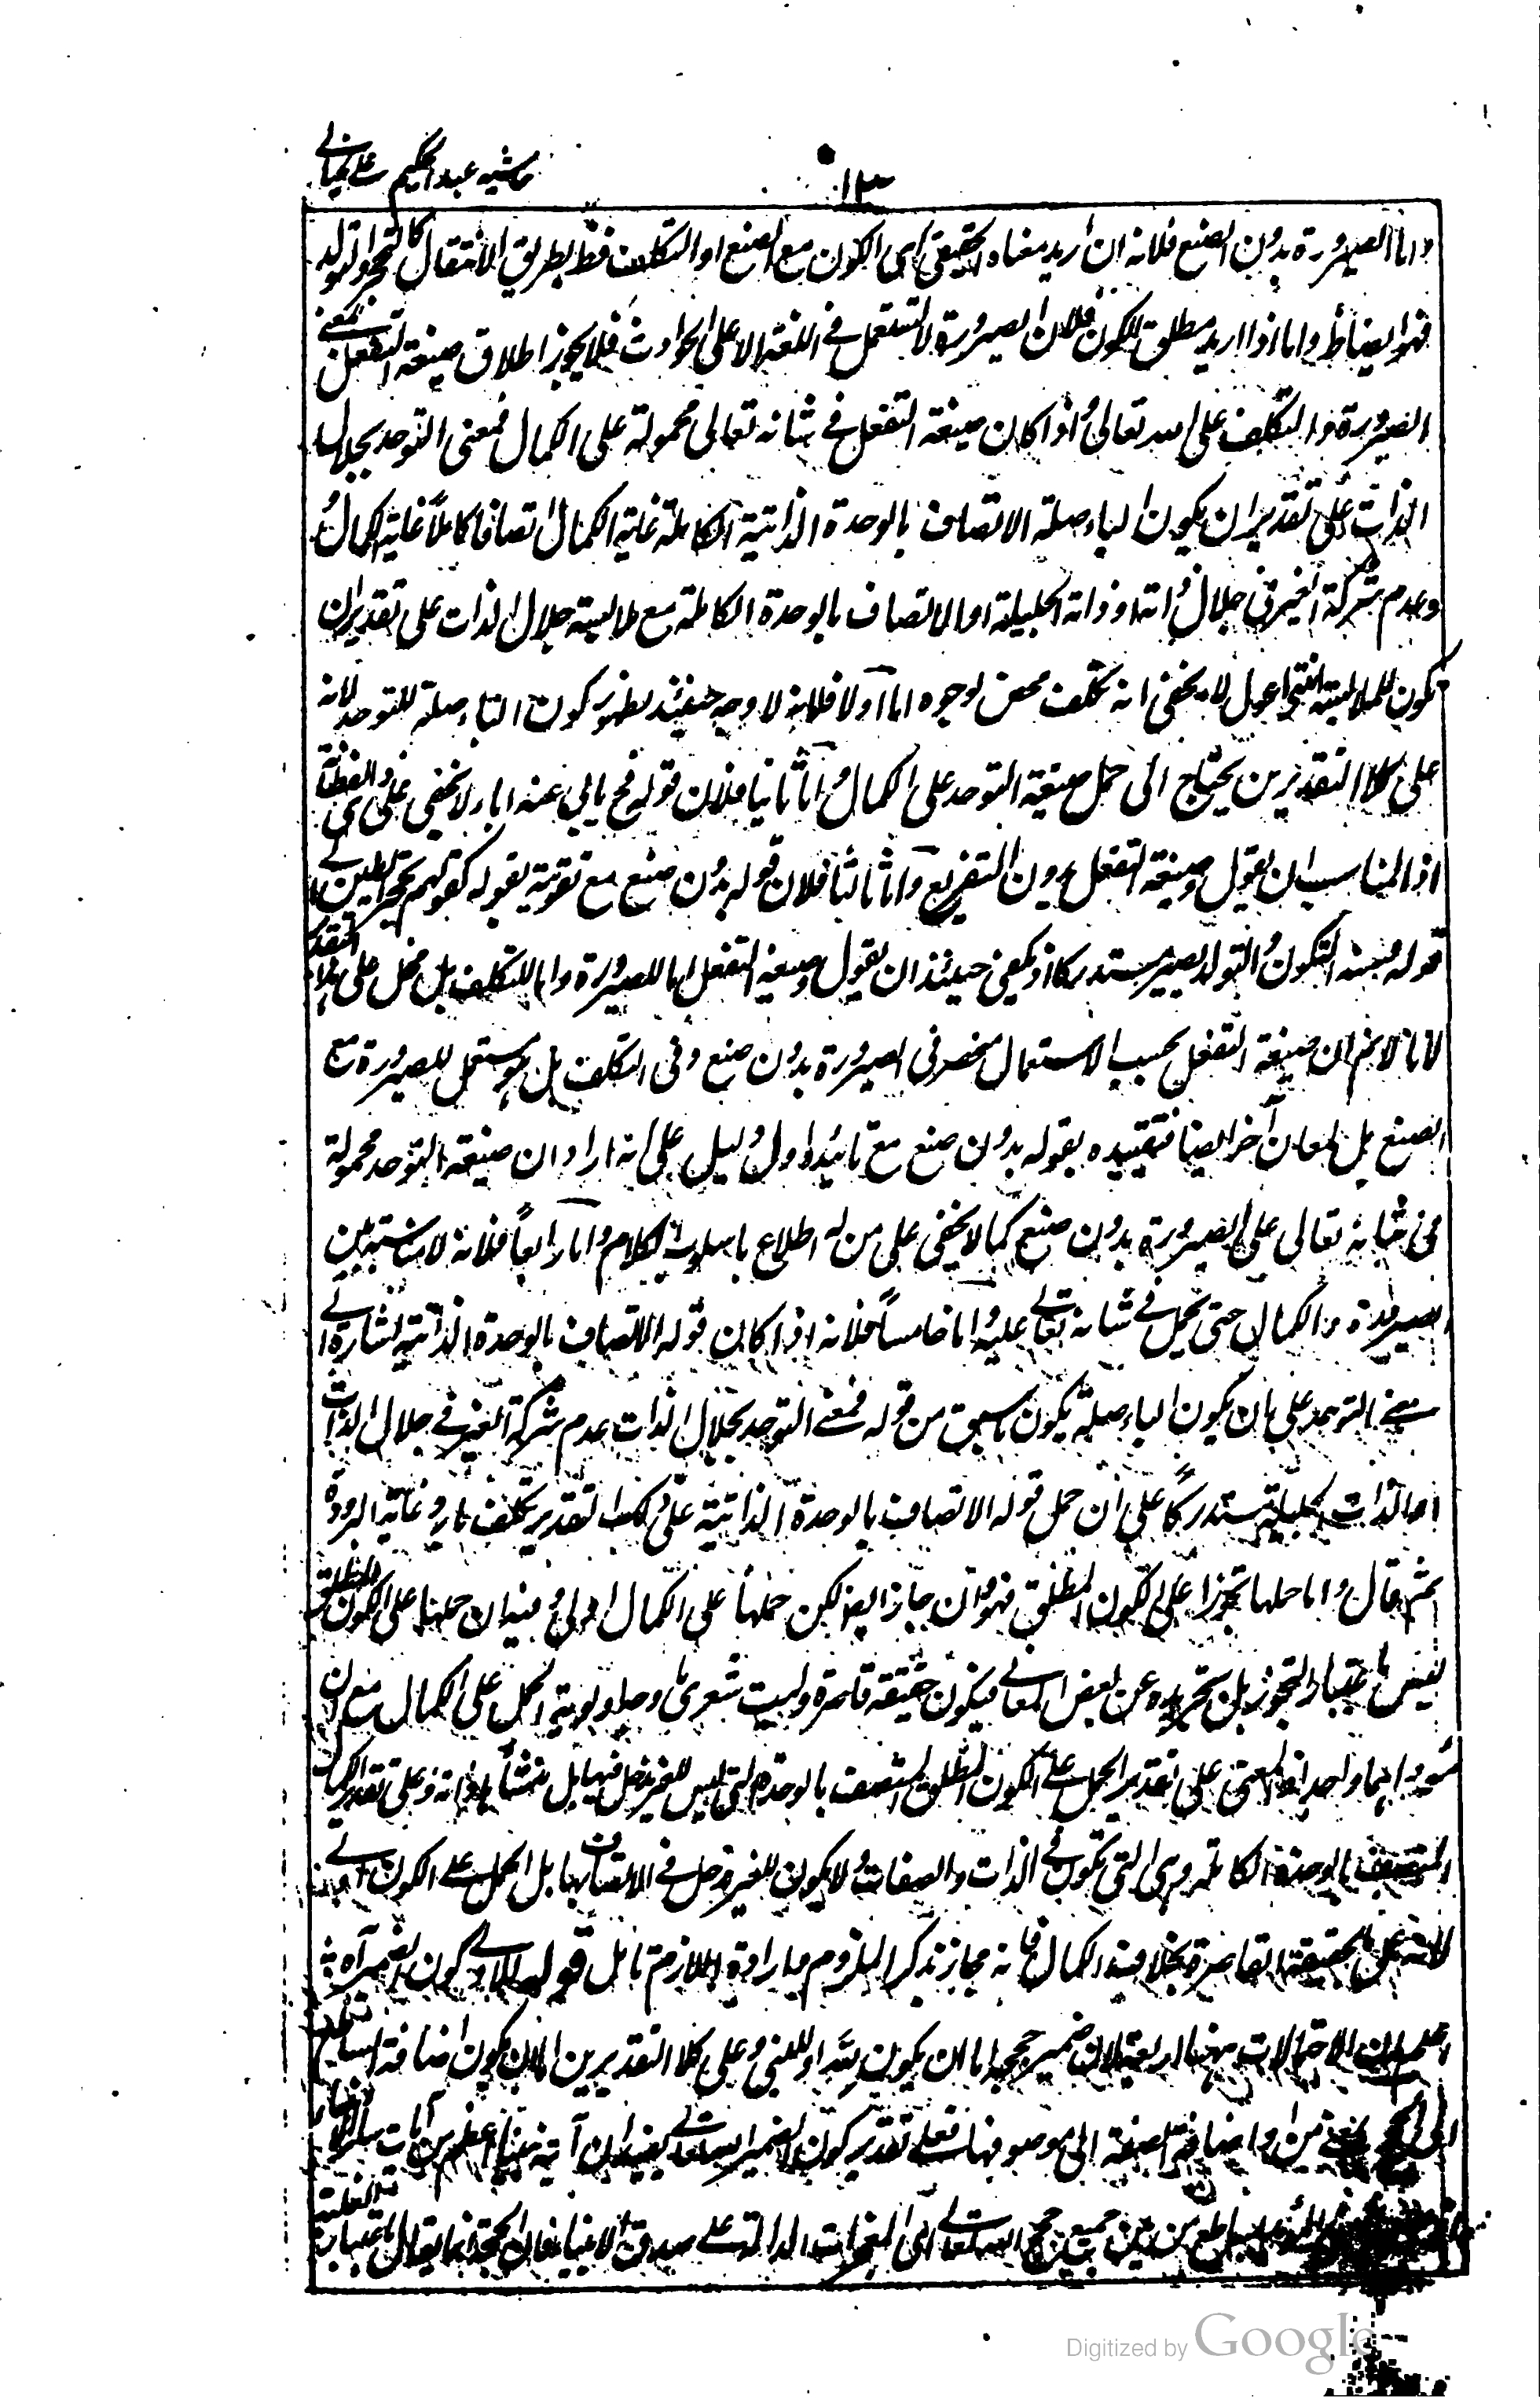 حاشيه عبد الحكيم على خيالى
١٣
واما الصيرورة بدون الصنع فلانه ان اريد معناه الحقيقى اى الكون مع الصنع او التكلف فقط بطريق الانتقال كالتحجر والتولد
فهو ايضا واما اذا اريد مطلق الكون فلان الصيرورة لا تستعمل فى اللغة الا على الحوادث فلا يجوز اطلاق صيغة التفعل بمعنى
الصيرورة والتكلف على الله تعالى واذا كان صيغة التفعل فى شانه تعالى محمولة على الكمال فمعنى التوحد بجلال
الذات على تقدير ان يكون الباء صلة الاتصاف بالوحدة الذاتية الكاملة غاية الكمال اتصافا كاملا غاية الكمال
وعدم شركة الغير فى جلال ذاته او ذاته الجليلة او الاتصاف بالوحدة الكاملة مع ملابسة جلال الذات على تقدير ان
يكون للملابسة انتهى اقول لا يخفى انه تكلف محض لوجوه اما اولا فلانه لا وجه حينئذ بظهور كون الباء صلة للتوحد لانه
على كلا التقديرين يحتاج الى حمل صيغة التوحد على الكمال واما ثانيا فلان قوله فح يابى عنه اباء لا يخفى على ذى الفطانة
اذ المناسب ان يقول وصيغة التفعل بدون التفريع واما ثالثا فلان قوله بدون صنع مع تقويته بقوله كقولهم تحجر الطين
قوله ومنه التكون والتولد يصير مستدركا اذ يكفى حينئذ ان يقول وصيغة التفعل اما للصيرورة واما للتكلف بل مخل على هذا التقدير
لانا لا نم ان صيغة التفعل بحسب الاستعمال منحصر فى الصيرورة بدون صنع وفى التكلف بل هو مستعمل للصيرورة مع
الصنع بل لمعان آخر ايضا فتقييده بقوله بدون صنع مع تائيده اول دليل على انه اراد ان صيغة التوحد محمولة
فى شانه تعالى على الصيرورة بدون صنع كما لا يخفى على من له اطلاع باسلوب الكلام واما رابعا فلانه لا مناسبة بين
الصيرورة والكمال حتى يحمل فى شانه تعالى عليه واما خامسا فلانه اذا كان قوله الاتصاف بالوحدة الذاتية اشارة الى
معنى التوحد على بان يكون الباء صلة يكون ما سبق من قوله فمعنى التوحد بجلال الذات عدم شركة الغير فى جلال الذات
او الذات الجليلة مستدركا على ان حمل قوله الاتصاف بالوحدة الذاتية على ذلك التقدير تكلف بارد غاية البرودة
ثم قال واما حملها تجوزا على الكون المطلق فهو وان جاز ايضا لكن حملها على الكمال اولى وفيه ان حملها على الكون المطلق
ليس باعتبار التجوز بل بتجريده عن بعض المعانى فيكون حقيقة قاصرة وليت شعرى ما وجه اولوية الحمل على الكمال مع ان
مؤداهما واحد اذ المعنى على تقدير الحمل على الكون المطلق المتصف بالوحدة التى ليس للغير دخل فيها بل منشأها ذاته وعلى تقدير الكمال
المتصف بالوحدة الكاملة وهى التى تكون فى الذات والصفات ولا يكون للغير دخل فى الاتصاف بها بل الحمل على الكون اولى
لانه حمل على الحقيقة القاصرة بخلاف الكمال فانه مجاز بذكر الملزوم وارادة اللازم تامل قوله الاولى كون الضمير آه
اعلم ان الاحتمالات ههنا اربعة لان ضمير حججه اما ان يكون لله او للنبى وعلى كلا التقديرين اما ان يكون اضافة الساطع
الى الحجج بمعنى من او اضافة الصفة الى موصوفها فعلى تقدير كون الضمير لله تعالى يفيد ان آية نبينا اعظم من آيات سائر الانبياء
ساطع من بين جميع حجج الله تعالى اى المعجزات الدالة على صدق الانبياء فان الحجة انما يقال باعتبار الغلبة